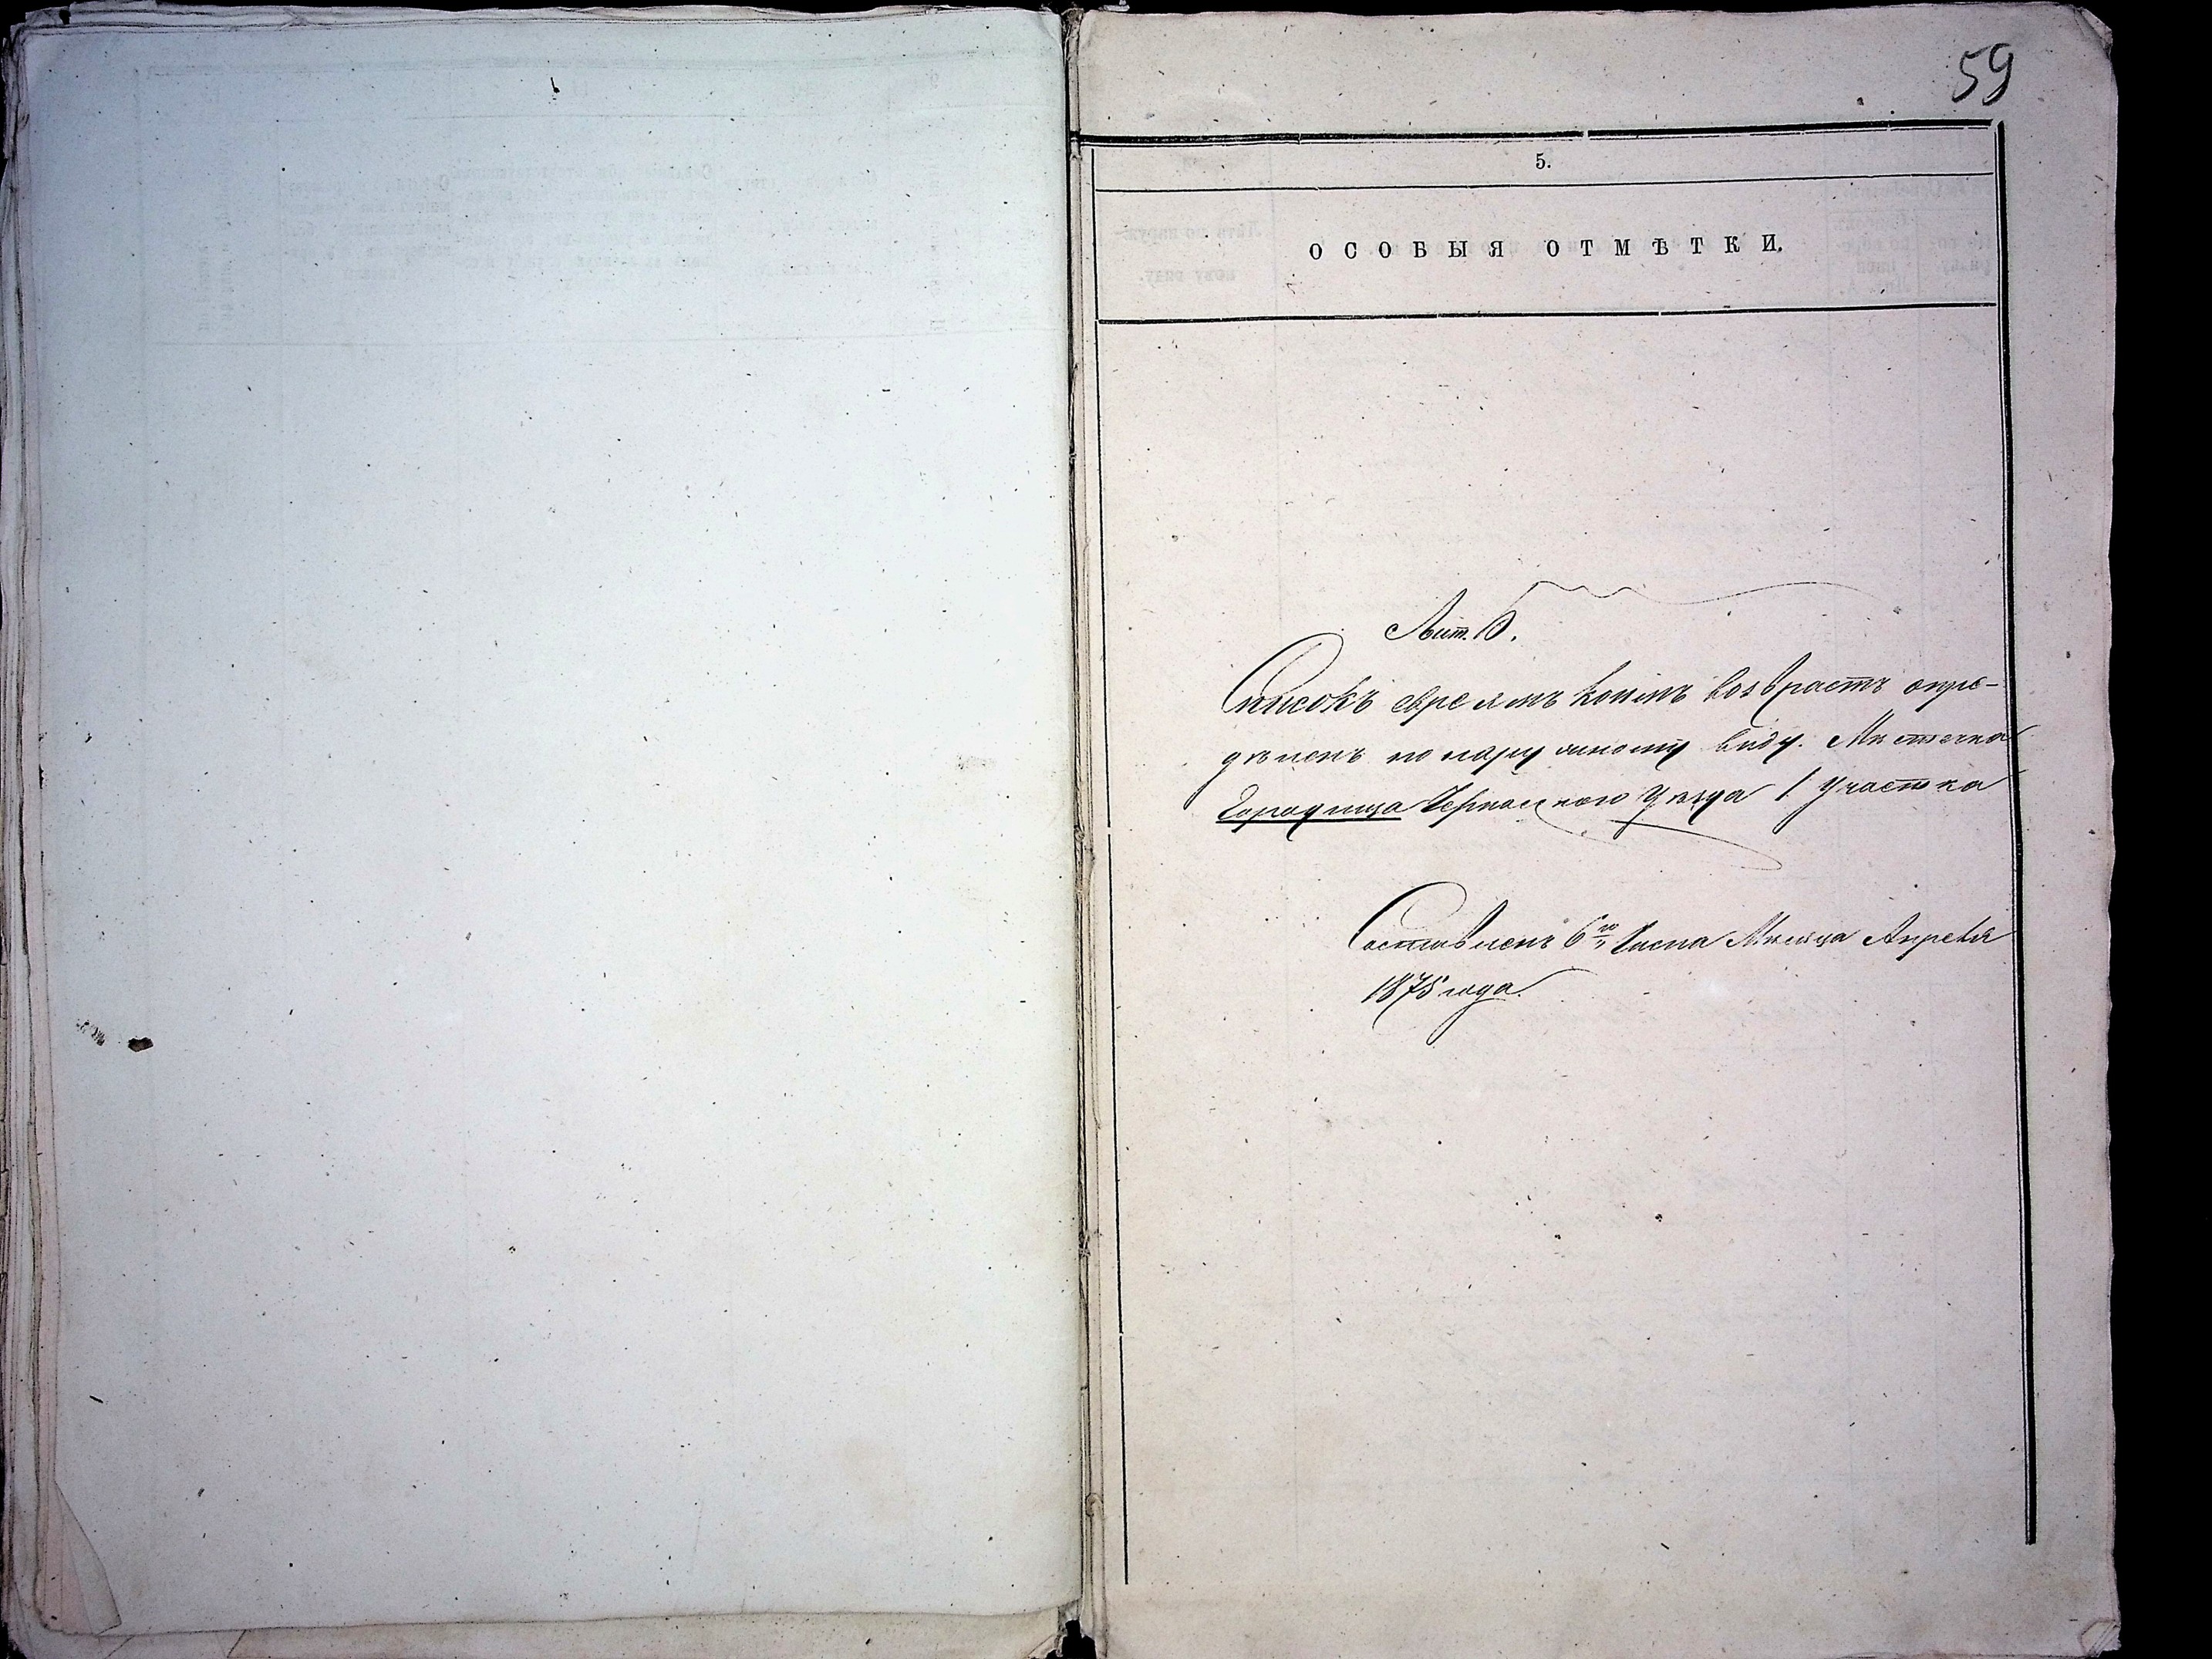 59
5.
ОСОБЫЯ ОТМѢТКИ.
Лит. Б.
Списокъ евреямъ коимъ возврастъ опре-
дѣленъ по наружному виду. Мѣстечка
Городища Черкаскаго Уѣзда 1 Участка
Составленъ 6го Числа Мѣсяца Апреля
1875 года.